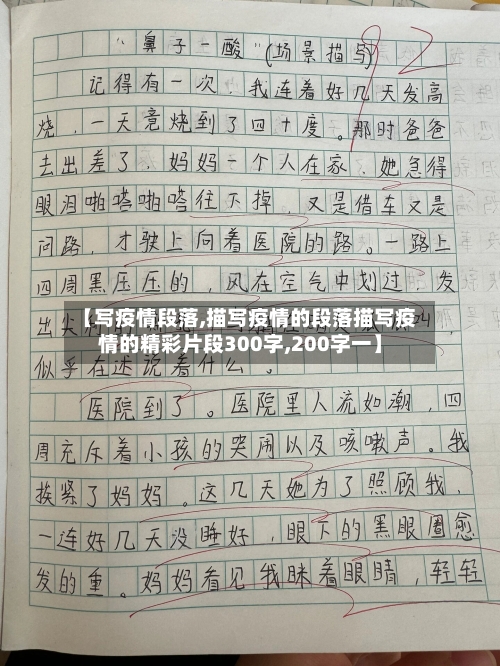 "鼻子一酸"(场景描写)
92
记得有一次，我连着好几天发高
烧，一天竟烧到了四十度。那时爸爸
去出差了，妈妈一个人在家，她急得
眼泪啪嗒啪嗒往下掉，又是借车又是
问路，才驶上向着医院的路。一路上
四周黑压压的，风在空气中划过，发
出尖
【写疫情段落,描写疫情的段落描写疫
情的精彩片段300字,200字一】
似乎在述说着什么。
医院到了。医院里人流如潮，四
周充斥着小孩的哭闹以及咳嗽声。我
挨紧了妈妈。这几天她为了照顾我，
一连好几天没睡好，眼下的黑眼圈愈
发的重。妈妈看见我眯着眼睛，轻轻